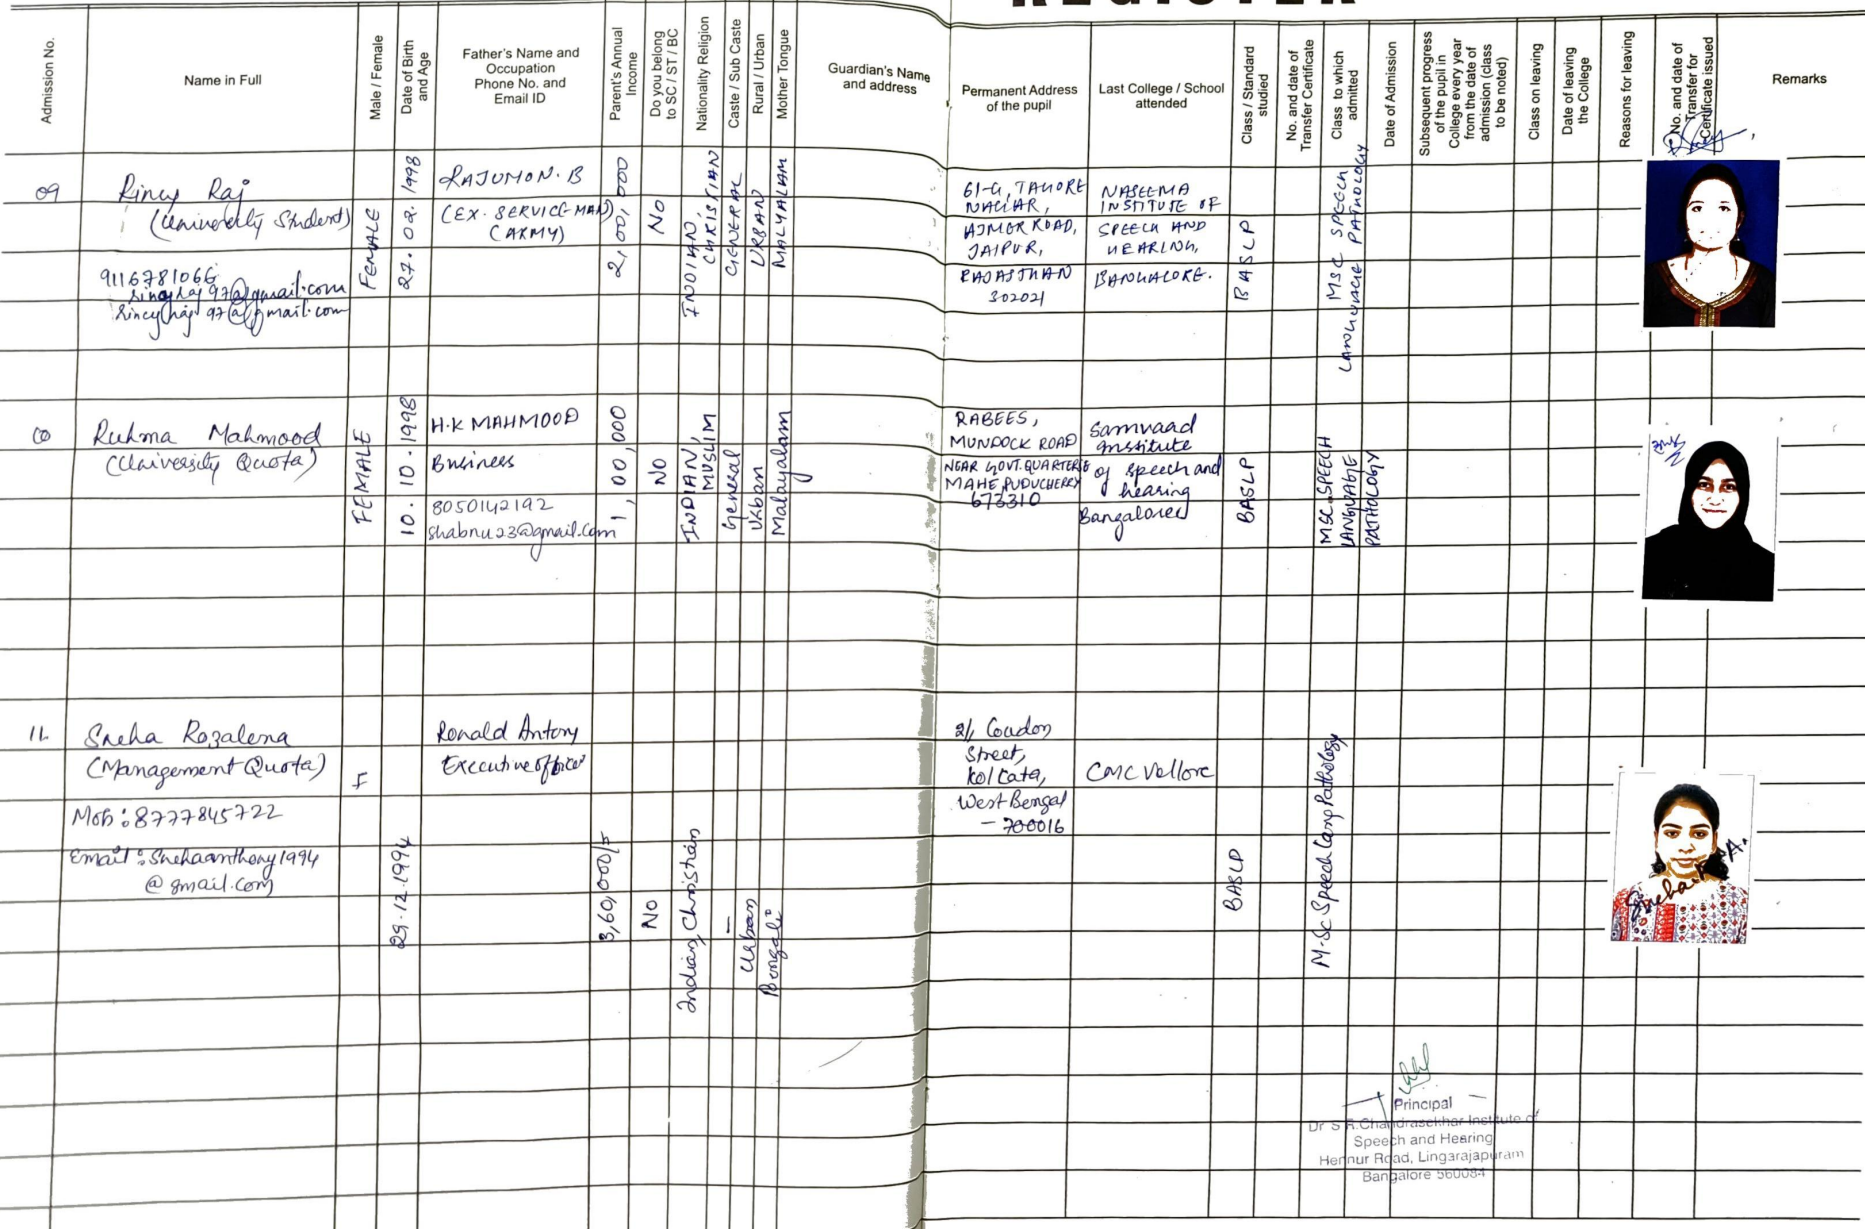 REGISTER
Admission No.
Name in Full
Male / Female
Date of Birth
and Age
Father's Name and
Occupation
Phone No. and
Email ID
Parent's Annual
Income
Do you belong
to SC / ST / BC
Nationality Religion
Caste / Sub Caste
Rural / Urban
Mother Tongue
Guardian's Name
and address
Permanent Address
of the pupil
Last College / School
attended
Class / Standard
studied
No. and date of
Transfer Certificate
Class to which
admitted
Date of Admission
Subsequent progress
of the pupil in
College every year
from the date of
admission (class
to be noted)
Class on leaving
Date of leaving
the College
Reasons for leaving
No. and date of
Transfer for
Certificate issued
Remarks
09
Rincy Raj
(University Student)
9116781066
rincyraj97@gmail.com
rincyraj97@gmail.com
FEMALE
27.02.1998
RAJUMON.B
(EX-SERVICE MAN)
(ARMY)
2,00,000
NO
INDIAN,
CHRISTIAN
GENERAL
URBAN
MALYALAM
61-G, TAGORE
NAGAR,
AJMER ROAD,
JAIPUR,
RAJASTHAN
302021
NASEEMA
INSTITUTE OF
SPEECH AND
HEARING,
BANGALORE.
BASLP
MSC SPEECH
LANGUAGE PATHOLOGY
10
Ruhma Mahmood
(University Quota)
FEMALE
10.10.1998
H.K MAHMOOD
Business
8050142192
shabnu23@gmail.com
1,00,000
NO
INDIAN,
MUSLIM
General
Urban
Malayalam
RABEES,
MUNDOCK ROAD
NEAR GOVT. QUARTERS
MAHE, PUDUCHERRY
673310
Samvaad
Institute
of speech and
hearing
Bangalore
BASLP
MSC.SPEECH
LANGUAGE
PATHOLOGY
11.
Sneha Rozalena
(Management Quota)
Mob: 8777845722
Email: Snehaanthony1994
@gmail.com
F
29.12.1994
Ronald Antony
Executive officer
3,60,000/-
NO
Indian, Christian
—
Urban
Bengali
2/1, Loudon
Street,
Kolkata,
West Bengal
- 700016
CMC Vellore
BASLP
M.Sc Speech Lang Pathology
Sneha.R.A.
Principal
Dr S R.Chandrasekhar Institute of
Speech and Hearing
Hennur Road, Lingarajapuram
Bangalore 560084